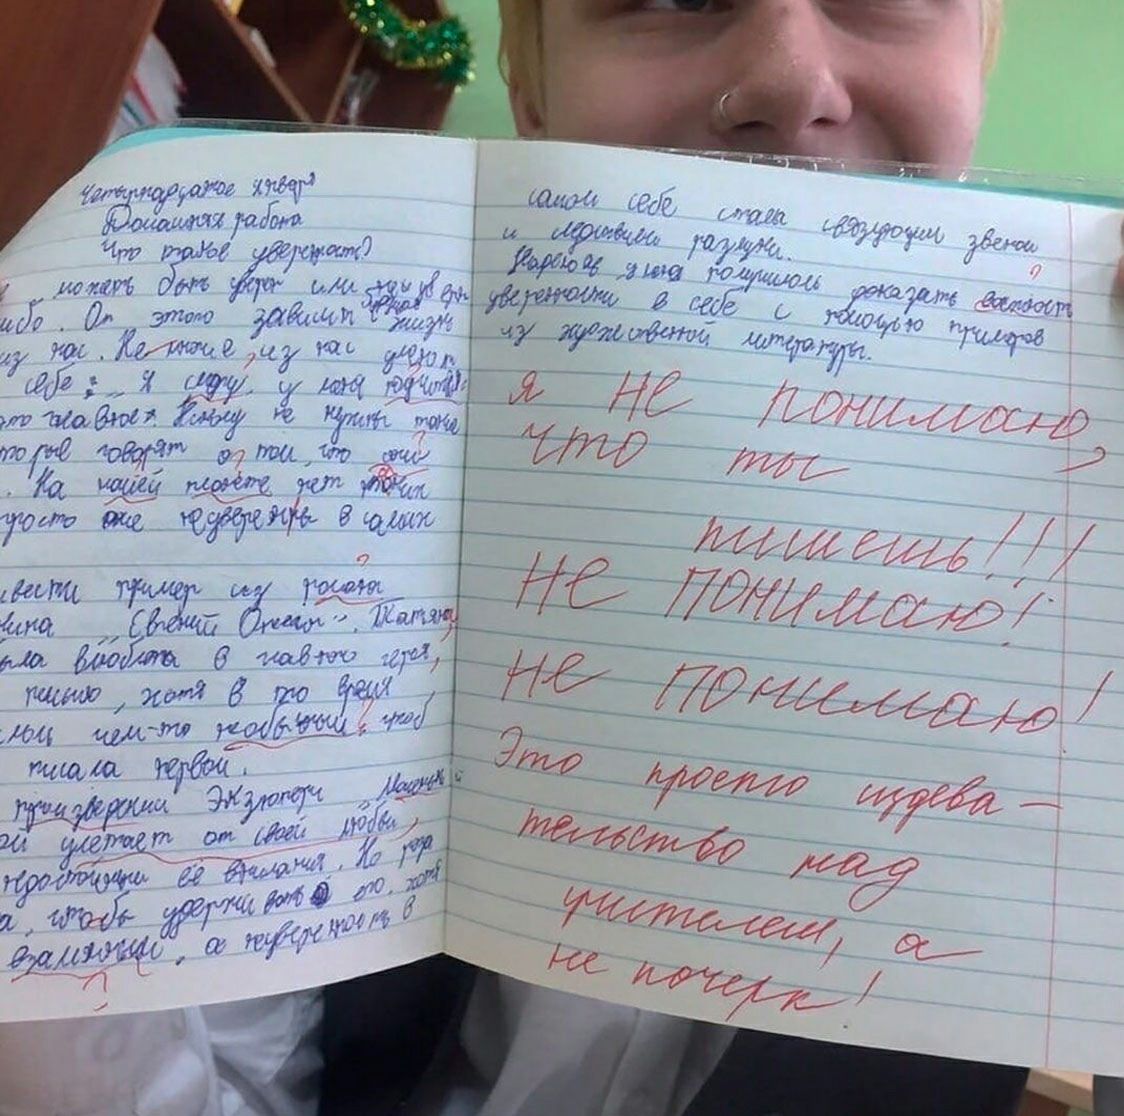 Четырнадцатое января
Домашняя работа
Что такое уверенность?
может быть уверен или не уверен
либо. От этого зависит жизнь
из нас. Не многие из нас умеют
себе: „Я
это главное". Никому не нужны такие
которые говорят о том, что они
. На нашей планете нет таких
просто они не уверены в самих
привести пример из романа
„Евгений Онегин". Татьяна
была влюблена в главного героя,
письмо, хотя в то время
чем-то необычным, чтоб
писала первой.
произведении Экзюпери „Маленький
улетает от своей любви,
её внимания. Но роза
, чтобы удерживать его, хотя
, а неуверенность в
самом себе стала связующим звеном
и разлуки.
Надеюсь, у меня получилось доказать важность
уверенности в себе с помощью примеров
из художественной литературы.
Я не понимаю,
что ты
пишешь!!!
Не понимаю!
Не понимаю!
Это просто издева-
тельство над
учителем, а
не почерк!